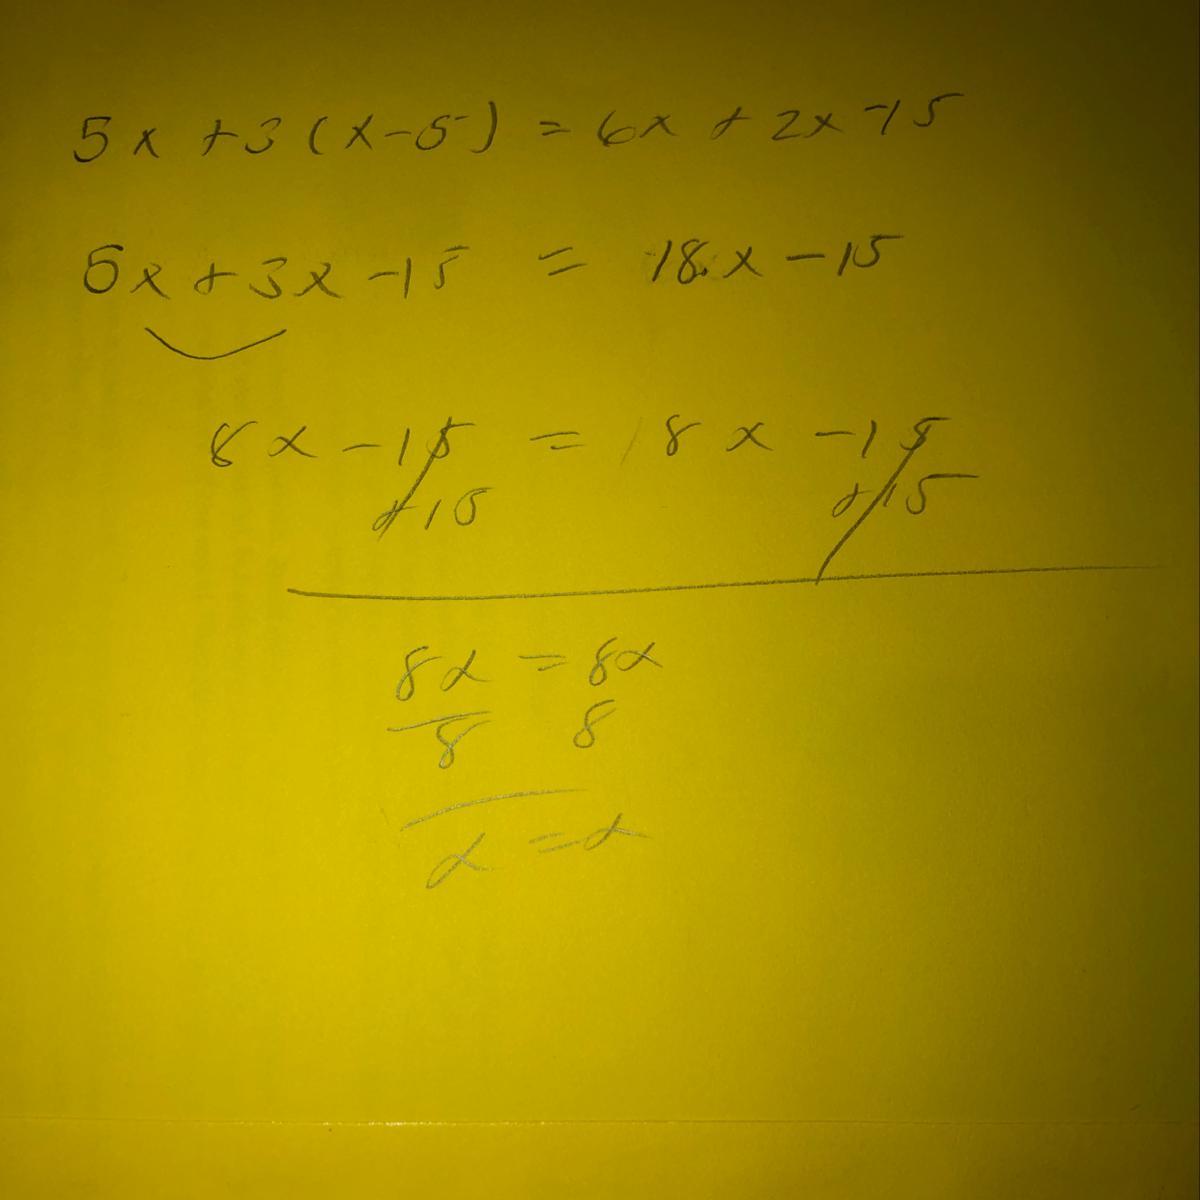 5x + 3(x-5) = 6x + 2x -15
5x + 3x -15 = 18x - 15
8x - 15 = 18x - 15
+15 +15
8x = 8x
8 8
x = x